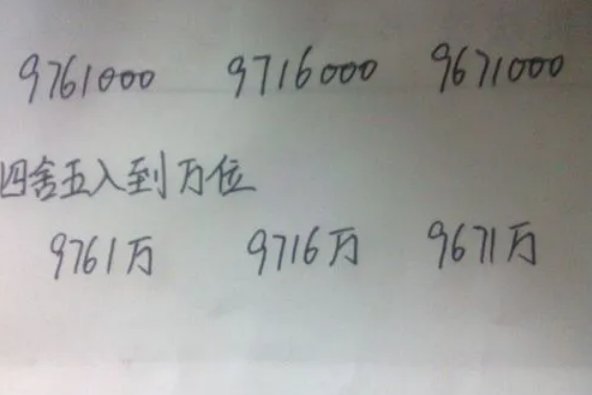 9761000 9716000 9671000
四舍五入到万位
9761万 9716万 9671万